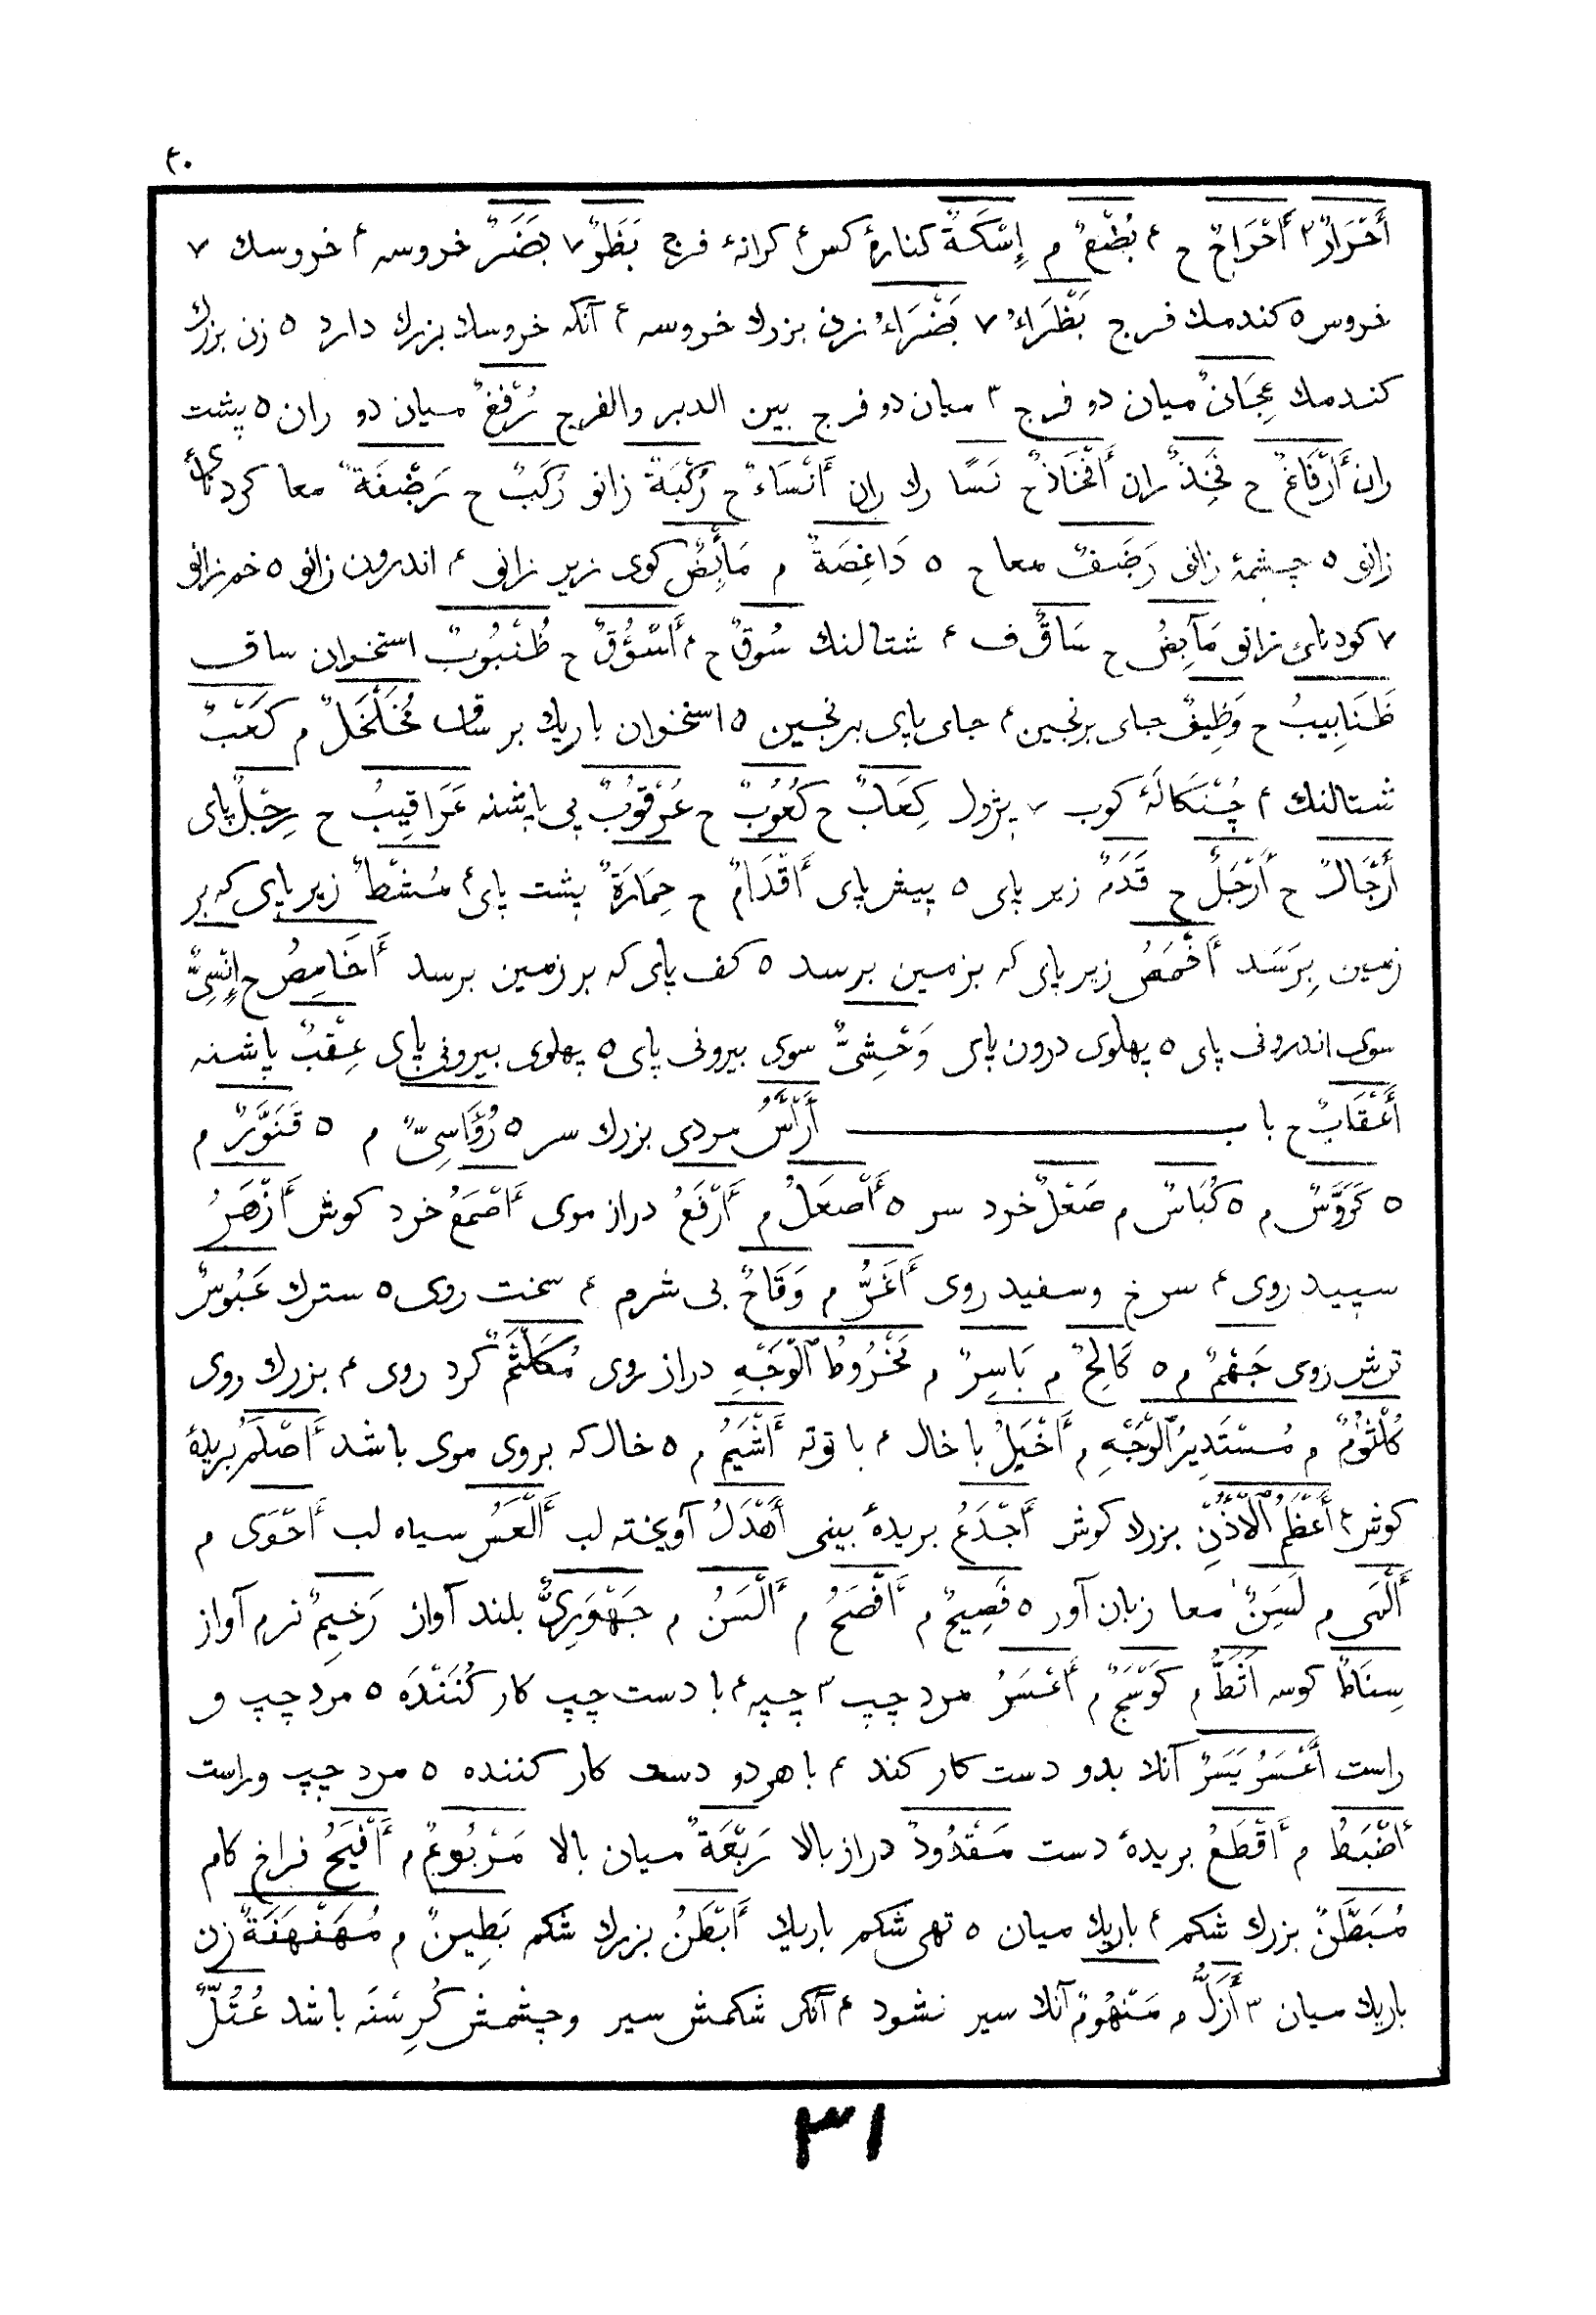 ۴۰
أَحْرَارٌ ۳ أَحْرَاحٌ ح ۴ بُضْعٌ م إِسْكَةٌ كنارهٔ كس ۴ كرانهٔ فرج بَظَرٌ ۷ بَضَرٌ خروسه ۴ خروسك ۷
خروس ٥ كندمك فرج بَظْرَاءُ ۷ بَضْرَاءُ زن بزرك خروسه ۴ آنكه خروسك بزرك دارد ٥ زن بزرك
كندمك عِجَانٌ ميان دو فرج ۳ ميان دو فرج بين الدبر والفرج رُفْغٌ ميان دو ران ٥ پشت
ران أَرْفَاغٌ ح فَخِذٌ ران أَفْخَاذٌ ح نَسًا رك ران أَنْسَاءٌ ح رُكْبَةٌ زانو رُكَبٌ ح رَضْفَةٌ معا كردناى
زانو ٥ چشمهٔ زانو رَضَفٌ معا ح ٥ دَاغِصَةٌ م مَأْبِضٌ كوى زير زانو ۴ اندرون زانو ٥ خم زانو
۷ كودناى زانو مَآبِضُ ح سَاقٌ ف ۴ شتالنك سُوقٌ ح ۴ أَسْؤُقٌ ح ظُنْبُوبٌ استخوان ساق
ظَنَابِيبُ ح وَظِيفٌ جاى برنجين ۴ جاى پاى برنجين ٥ استخوان باريك بر ساق مُخَلْخَلٌ م كَعْبٌ
شتالنك ۴ چُنْكَالَهٔ كوب ۷ پژول كِعَابٌ ح كُعُوبٌ ح عُرْقُوبٌ پى پاشنه عَرَاقِيبُ ح رِجْلٌ پاى
أَرْجَالٌ ح أَرْجُلٌ ح قَدَمٌ زير پاى ٥ پيش پاى أَقْدَامٌ ح حِمَارَةٌ پشت پاى ۴ مُشْطٌ زير پاى كه بر
زمين بِرَسَد أَخْمَصُ زير پاى كه بزمين برسد ٥ كف پاى كه بر زمين برسد أَخَامِصُ ح إِنْسِيٌّ
سوى اندرونى پاى ٥ پهلوى درون پاى وَحْشِيٌّ سوى بيرونى پاى ٥ پهلوى بيرونى پاى عِقْبٌ پاشنه
أَعْقَابٌ ح باب أَرْأَسُ مردى بزرك سر ٥ رُؤَاسِيٌّ م ٥ قَنَوَّرٌ م
٥ كَرَوَّسٌ م ٥ كُبَاسٌ م صَعْلٌ خود سر ٥ أَصْعَلُ م أَرْفَعُ دراز موى أَصْمَعُ خرد كوش أَزْهَرُ
سپيد روى ۴ سرخ وسفيد روى أَغَرُّ م وَقَاحٌ بى شرم ۴ سخت روى ٥ سترك عَبُوسٌ
ترش روى جَهْمٌ م ٥ كَالِحٌ م بَاسِرٌ م مَخْرُوطُ الْوَجْهِ دراز روى مُكَلْثَمٌ كرد روى ۴ بزرك روى
كُلْثُومٌ م مُسْتَدِيرُ الْوَجْهِ م أَخْيَلُ با خال ۴ با توته أَشْيَمُ م ٥ خال كه بروى موى باشد أَصْلَمُ بريدهٔ
كوش ۴ أَعْظَمُ الْأُذُنِ بزرك كوش أَجْدَعُ بريدهٔ بينى أَهْدَلُ آويخته لب أَلْعَسُ سياه لب أَحْوَى م
أَلْمَى م لَسِنٌ معا زبان آور ٥ فَصِيحٌ م أَفْصَحُ م أَلْسَنُ م جَهْوَرِيٌّ بلند آواز رَخِيمٌ نرم آواز
سِنَاطٌ كوسه اَثَطُّ م كَوْسَجٌ م أَعْسَرُ مرد چپ ۳ چپه ۴ با دست چپ كار كُنَنْدَه ٥ مرد چپ و
راست أَعْسَرُ يَسَرٌ آنك بدو دست كار كند ۴ با هر دو دست كار كننده ٥ مرد چپ وراست
أَضْبَطُ م أَقْطَعُ بريدهٔ دست مَقْدُودٌ دراز بالا رَبْعَةٌ ميان بالا مَرْبُوعٌ م أَفْيَحُ فراخ كام
مُبَطَّنٌ بزرك شكم ۴ باريك ميان ٥ تهى شكم باريك أَبْطَنُ بزرك شكم بَطِينٌ م مُهَفْهَفَةٌ زن
باريك ميان ۳ أَزَلُّ م مَنْهُومٌ آنك سير نشود ۴ آنكر شكمش سير وچشمش كُرِسْنَه باشد عُتُلٌّ
۳۱